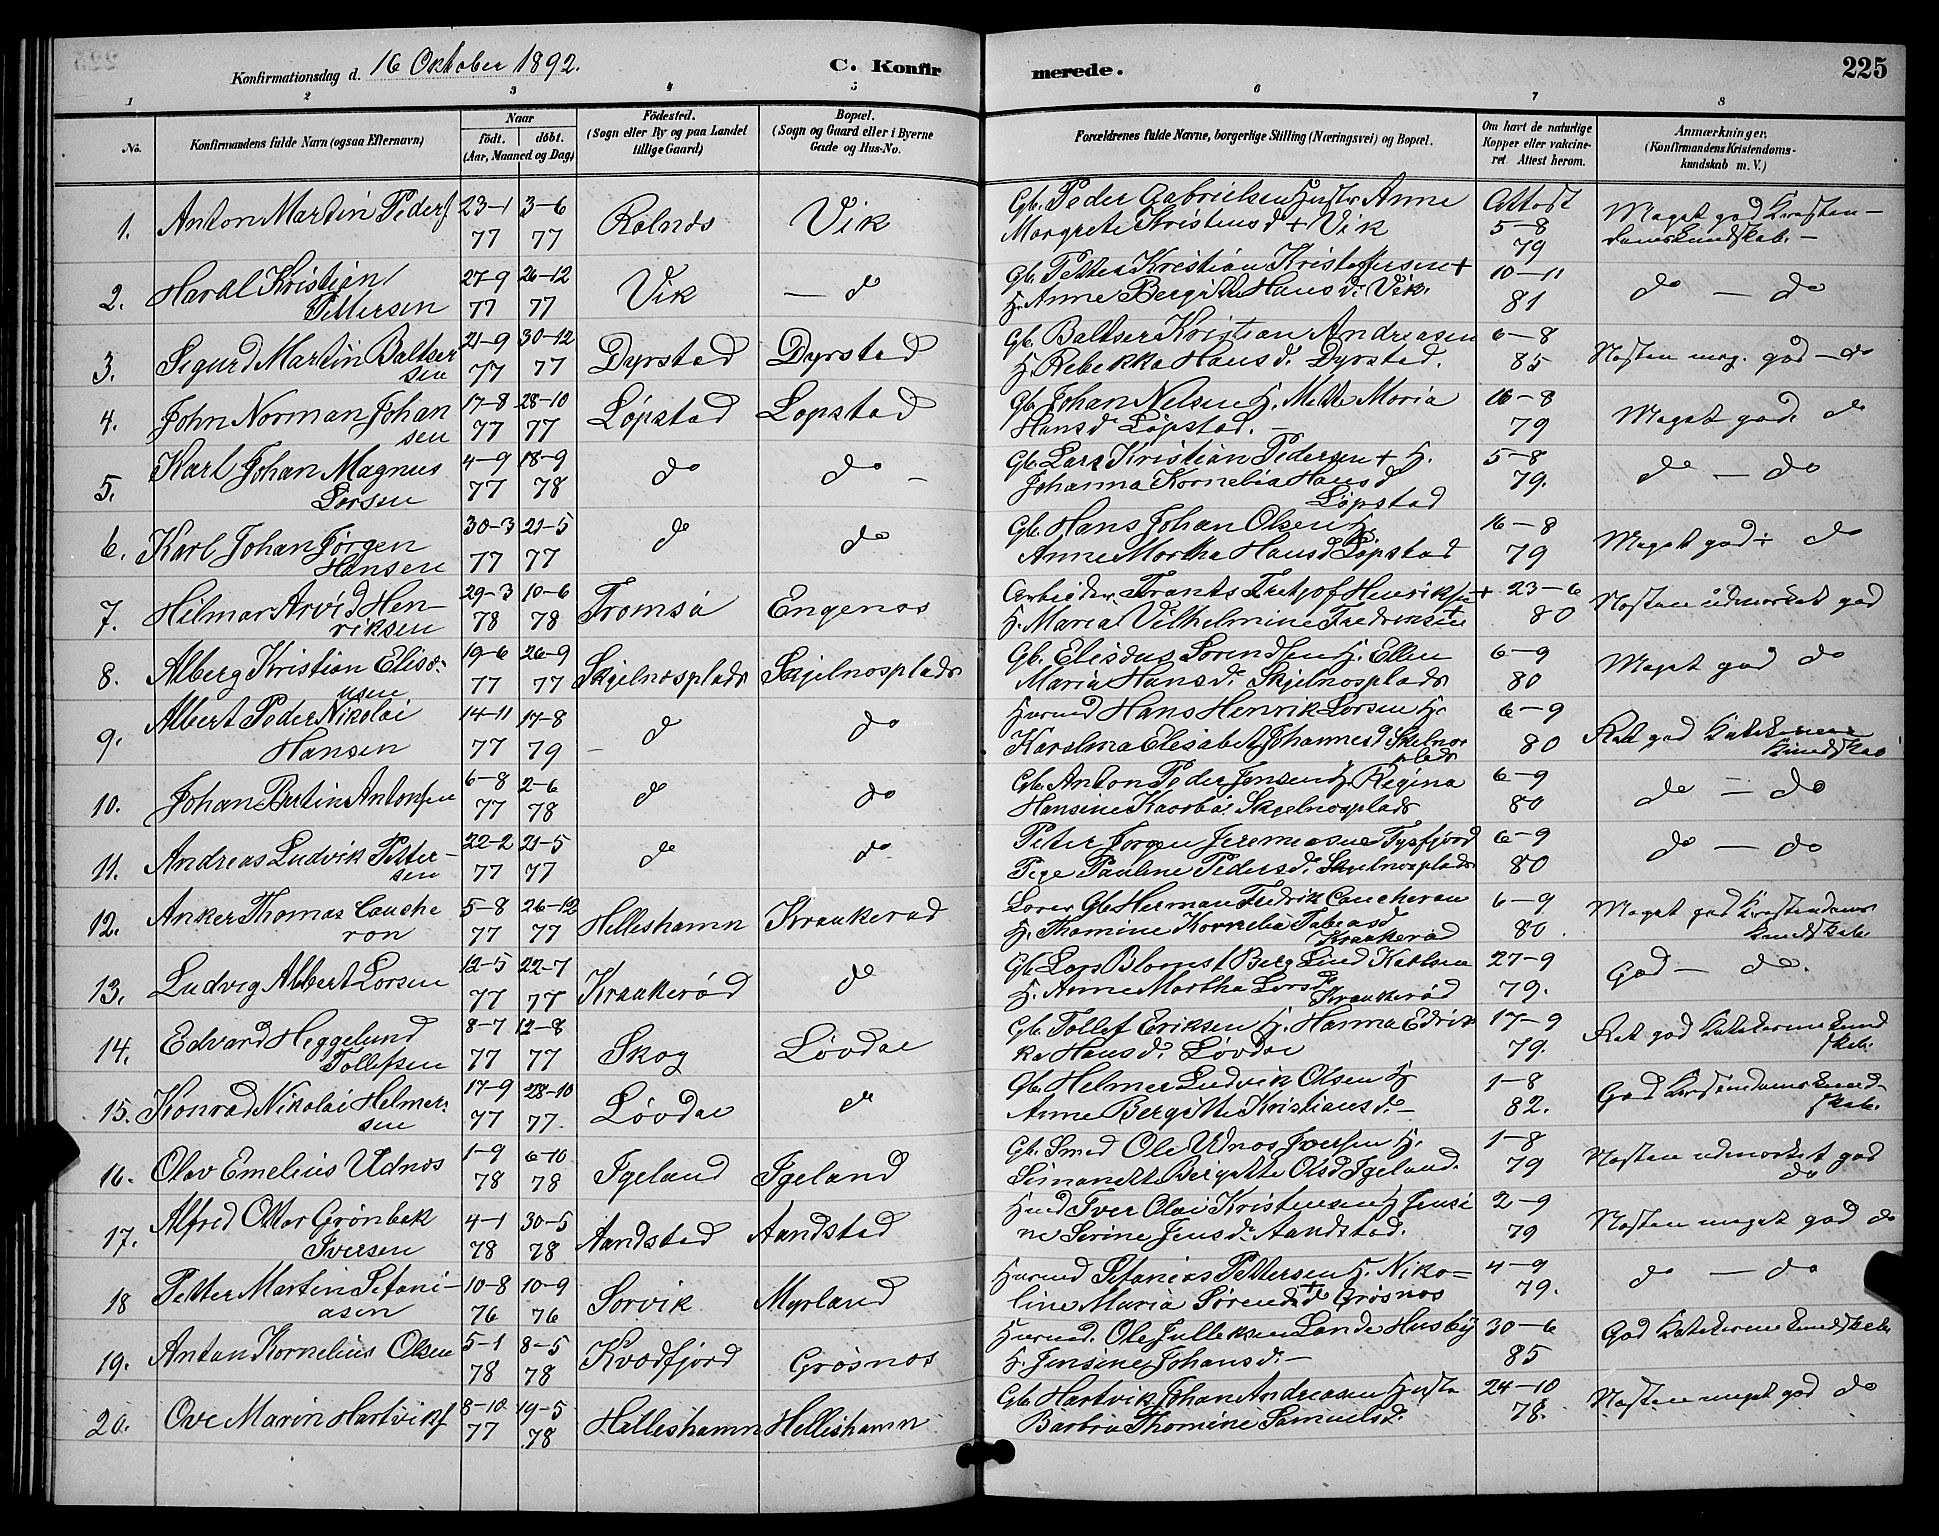 Konfirmationsdag d. 16 Oktober 1892. C. Konfirmerede. 225
1 2 3 4 5 6 7 8
No. Konfirmandens fulde Navn (ogsaa Efternavn) Naar födt. döbt. (Aar, Maaned og Dag) Födested. (Sogn eller By og paa Landet tillige Gaard) Bopæl. (Sogn og Gaard eller i Byerne Gade og Hus-No. Forældrenes fulde Navne, borgerlige Stilling (Næringsvei) og Bopæl. Om havt de naturlige Kopper eller vakcineret Attest herom. Anmærkninger. (Konfirmandens Kristendomskundskab m. V.)
1. Anton Martin Peders 23-1 77 3-6 77 Rolnæs Vik Gb. Peder Gabrielsen Hustr Anne Margrete Kristens d + Vik Attest 5-8 79 Meget god Kristendomskundskab. -
2. Haral Kristian Pettersen 27-9 77 26-12 77 Vik - do Gb. Petter Kristian Kristoffersen + H. Anne Bergitte Hans d. Vik. 10-11 81 do - do
3. Sigurd Martin Baltsersen 21-9 77 30-12 77 Dyrstad Dyrstad Gb. Baltser Kristian Andreasen H. Rebekka Hans d. Dyrstad. 6-8 85 Næsten meg. god - do
4. John Norman Johansen 17-8 77 28-10 77 Løpstad Løpstad Gb. Johan Nelsen H. Mette Maria Hans d Løpstad. - 16-8 79 Meget god. do
5. Karl Johan Magnus Larsen 4-9 77 18-9 78 do do - Gb. Lars Kristian Pedersen + H. Johanna Kornelia Hans d Løpstad 5-8 79. do - do
6. Karl Johan Jørgen Hansen 30-3 77 21-5 77 do do Gb. Hans Johan Olsen H. Anne Martha Hans d Løpstad 16-8 79 Meget god - do
7. Hilmar Arvid Henriksen 29-3 78 10-6 78 Tromsø Engenæs Arbieder. Frants Fretjof Henriksen + H. Maria Vilhelmine + 23-6 80 Næsten udmærket god
8. Alberg Kristian Elisæusen 19-6 77 26-9 77 Skjelnæsplads Skjelnæsplads Gb. Elisæus Sørendsen H. Ellen Maria Hans d. Skjelnæsplads 6-9 80 Meget god do
9. Albert Peder Nikolai Hansen 14-11 77 17-8 79 - do do Hans Henrik Larsen H. Elisabet Johannes d Skelnæsplads 6-9 80 Ret god
10. Johan Bertin Antonsen 6-8 77 2-6 78 do do Gb. Anton Peder Jensen H. Regina Hansine Kaarbø. Skjelnæsplads 6-9 80 do - do
11. Andreas Ludvik Pettersen 22-2 77 21-5 77 do do Peter Jørgen Tysfjord Pige Pauline Peders d. Skjelnæsplads 6-9 80 do - do
12. Anker Thomas Caucheron 5-8 77 26-12 77 Helleshamn Kraakerød Lærer Gb. Herman Fredrik Caucheron H. Thomine Kornelia Kraakerød 6-9 80. Meget god Kristendomskundskab.
13. Ludvig Albert Larsen 12-5 77 22-7 77 Kraakerød do Gb. Lars Blomst Berg Lind Karlsen H. Anne Martha Lars d Kraakerød 27-9 79. God - do.
14. Edvard Heggelund Tollefsen 8-7 77 12-8 77 Skog Løvdal Gb. Tollef Eriksen H. Hanna Edrikka Hans d. Løvdal 17-9 79. Ret god
15. Konrad Nikolai Helmersen 17-9 77 28-10 77. Løvdal do Gb. Helmer Ludvik Olsen H Anne Bergitte Kristians d. - 1-8 82. God Kristendomskundskab.
16. Olav Emelius Udnæs 1-9 78 6-10 78 Igeland Igeland Gb. Smed Ole Udnæs Iversen H. Bergitte Ols d Igeland. 1-8 79 Næsten udmærket god do
17. Alfred Ottar Grønbek Iversen 4-1 78 30-5 78 Aandstad Aandstad Iver Olai Kristensen H. Jensine Serine Jens d. Aandstad. 2-9 79 Næsten meget god do
18 Petter Martin Stefaniasen 10-8 76 10-9 76 Sørvik Myrland Stefanias Pettersen H. Nikoline Maria Sørends d + Grøsnæs 4-9 79. do - do
19. Anton Kornelius Olsen 5-1 78 8-5 78 Kvædfjord Grøsnæs Husby H. Jensine Johans d. - 30-6 85 God
20. Ove Marin Hartviks 8-10 77 19-5 78 Helleshamn Hellishamn Gb. Hartvik Johan Andreasen Hustr Barbra Thomine Samuels d. 24-10 78. Næsten meget god do